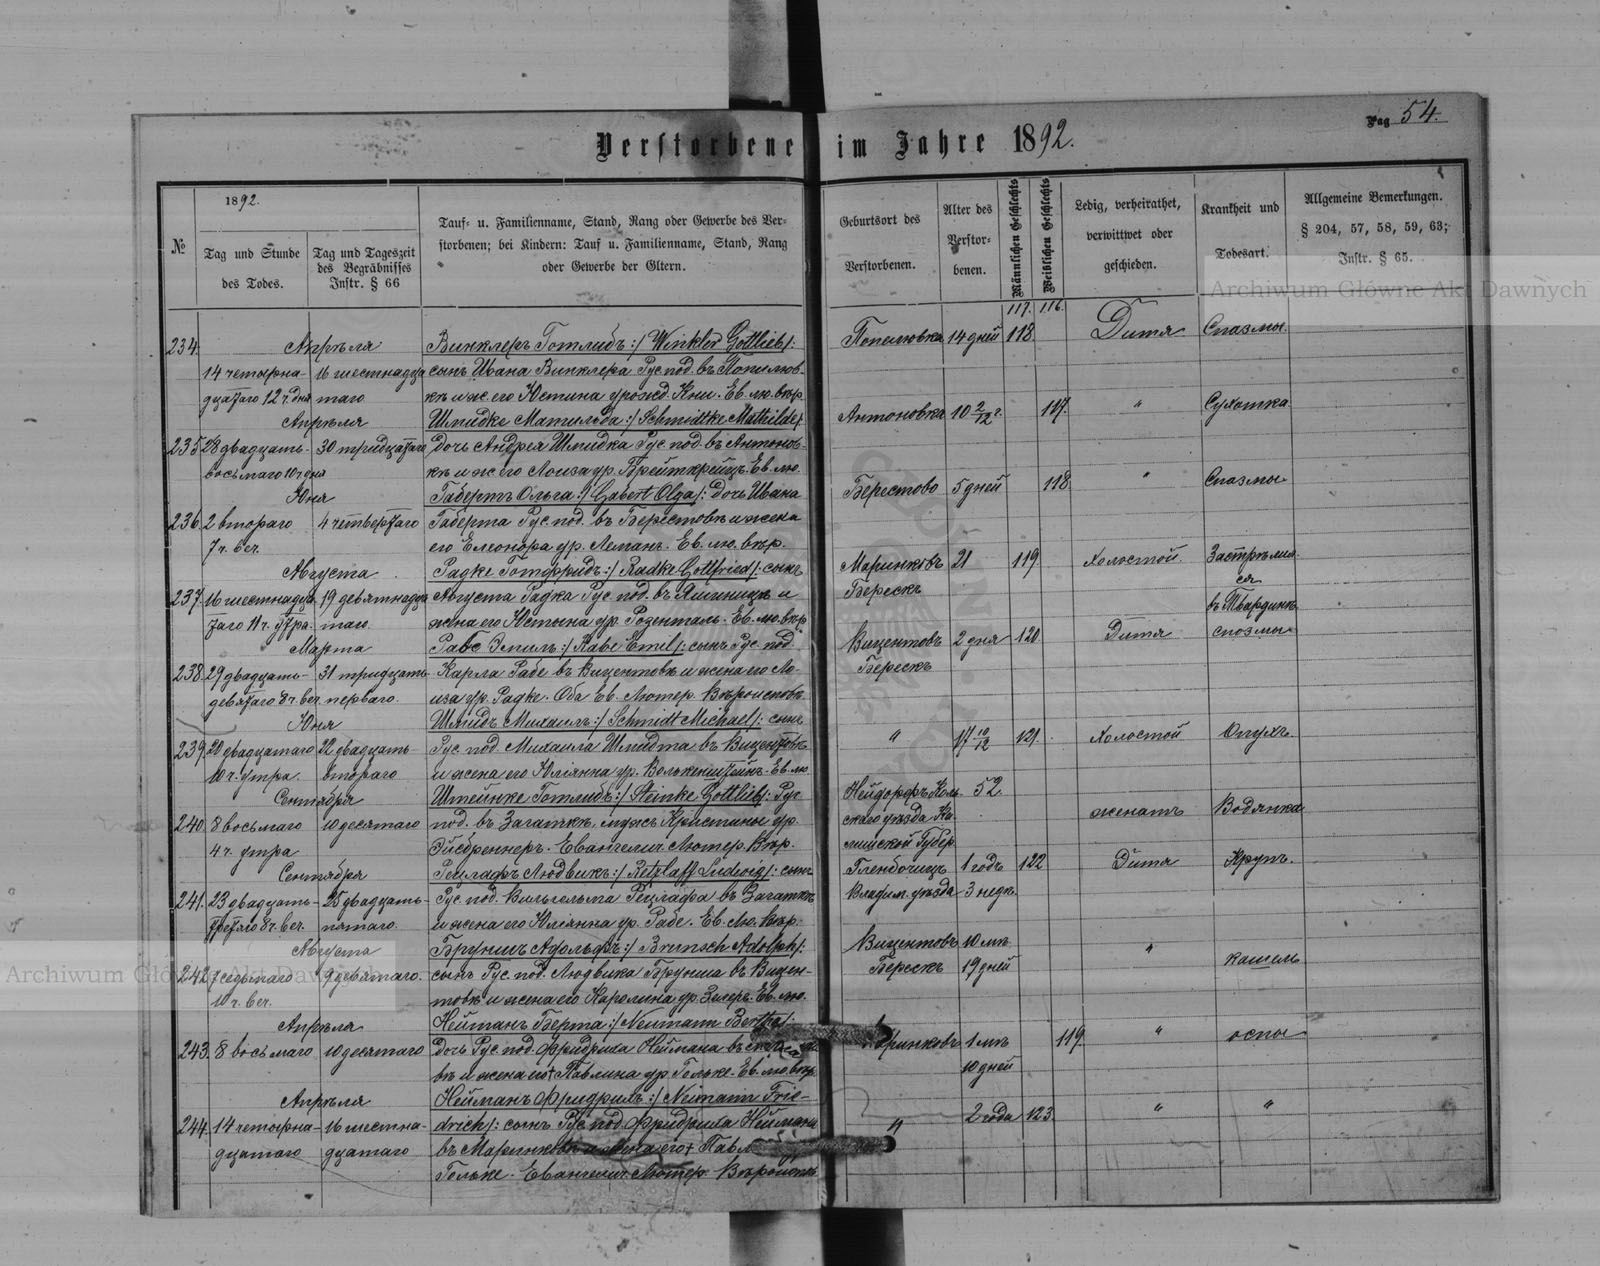 Pag 54.
Verstorbene im Jahre 1892.
№
1892.
Tag und Stunde
des Todes.
Tag und Tageszeit
des Begräbnisses
Instr. § 66
Tauf- u. Familienname, Stand, Rang oder Gewerbe des Ver-
storbenen; bei Kindern: Tauf u. Familienname, Stand, Rang
oder Gewerbe der Eltern.
Geburtsort des
Verstorbenen.
Alter des
Verstor-
benen.
Männlichen Geschlechts
Weiblichen Geschlechts
Ledig, verheirathet,
verwittwet oder
geschieden.
Krankheit und
Todesart.
Allgemeine Bemerkungen.
§ 204, 57, 58, 59, 63;
Instr. § 65.
117. 116.
234. Апрѣля Винклеръ Готлибъ :/ Winkler Gottlieb /: Попелювка 14 дней 118 Дитя Спазмы.
14 четырна- 16 шестнадца сынъ Ивана Винклера Рус. под. въ Попилюв-
дцатаго 12 ч. дня таго кѣ и ж. его Юстина урожд. Ев. лю. вѣр.
Апрѣля Шмидке Матильда :/ Schmidtke Mathilde /: Антоновка 10 2/12 г. 117. " Сухотка
235 28 двадцать- 30 тридцатаго Дочь Андрея Шмидка Рус. под. въ Антонов-
восьмаго 10 ч дня кѣ и ж. его Лоиза ур. Брейткрейцъ. Ев. лю.
Юня Габертъ Ольга :/ Gabert Olga /: Дочь Ивана Берестово 5 дней 118 " Спазмы
236. 2 втораго 4 четвертаго Габерта Рус. под. въ Берестовѣ и жена
7 ч. веч. его Елеонора ур. Леманъ. Ев. лю. вѣр.
Августа Радке Готфридъ :/ Radke Gottfried /: сынъ Маринковъ 21 119. Холостой. Застрѣлил
ся
237. 16 шестнадца 19 девятнадца Августа Радка Рус. под. въ и Берескъ
таго 11 ч. утра. таго. жена его Юстына ур. Розенталь. Ев. лю. вѣр въ Твардинѣ
Марта Рабе Эмиль :/ Rabe Emil /: сынъ Рус. под. Вицентовъ 2 дня 120 Дитя спазмы
238. 29 двадцать- 31 тридцать Карла Рабе въ Вицентовѣ и жена его Ло- Берескъ
девятаго 8 ч. веч. перваго. иза ур. Радке. Оба Ев. Лютер. Вѣроисповѣ.
Юня Шмидъ Михаилъ :/ Schmidt Michael /: сынъ
239. 20 двадцатаго 22 двадцать- Рус. под. Михаила Шмидта въ Вицентовѣ " 17 10/12 121. Холостой Опухъ
10 ч. утра. втораго и жена его Юліянна ур. Волькенштейнъ. Ев. лю
Сентября Штейнке Готлибъ :/ Steinke Gottlieb /: Рус Нейдорфъ Коль 52
240. 8 восьмаго 10 десятаго под. въ Загаткѣ, мужъ Кристины ур. скаго уѣзда Ка женатъ Водянка
4 ч. утра Эйсбреннеръ. Евангелич. Лютер. Вѣр. лишской Губер.
Сентября Рецлафъ Людвикъ :/ Retzlaff Ludwig /: сынъ Глембочецъ 1 годъ 122 Дитя Крупъ.
241. 23 двадцать- 25 двадцать- Рус. под. Вильгельма Рецлафа въ Загаткѣ Владим. уѣзда 3 недѣ.
третяго 8 ч. веч. пятаго. и жена его Юліянна ур. Рабе. Ев. Лю. Вѣр.
Августа Бруншъ Адольфъ :/ Brunsch Adolph /: Вицентовъ 10 мѣ. "
242 7 седьмаго 9 девятаго. сынъ Рус. под. Людвика Брунша въ Вицен- Берескъ 19 дней кашель
10 ч. веч. товѣ и жена его Каролина ур. Зелеръ. Ев. лю.
Апрѣля Нейманъ Берта :/ Neumann Bertha /:
243. 8 восьмаго 10 десятаго Дочь Рус. под. Фридриха Неймана въ Маринковъ 1 мѣ 119. " оспы
вѣ и жена его Павлина ур. Гольке. Ев. лю. вѣр. 10 дней
Апрѣля Нейманъ Фридрихъ :/ Neumann Frie-
244. 14 четырна- 16 шестна- drich /: сынъ Рус. под. Фридриха Неймана " 2 года 123 " "
дцатаго дцатаго въ Маринковѣ и жена его Павл ур.
Гольке. Евангелич. Лютер. Вѣроиспов.
Archiwum Główne Akt Dawnych
Archiwum Główne Akt Dawnych